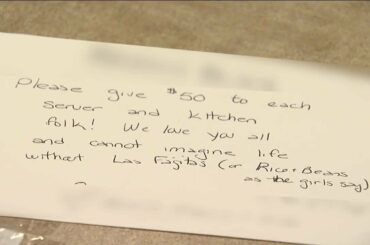 Please give $50 to each
server and kitchen
folk! We love you all
and cannot imagine life
without Las Fajitas (or Rice + Beans
as the girls say)